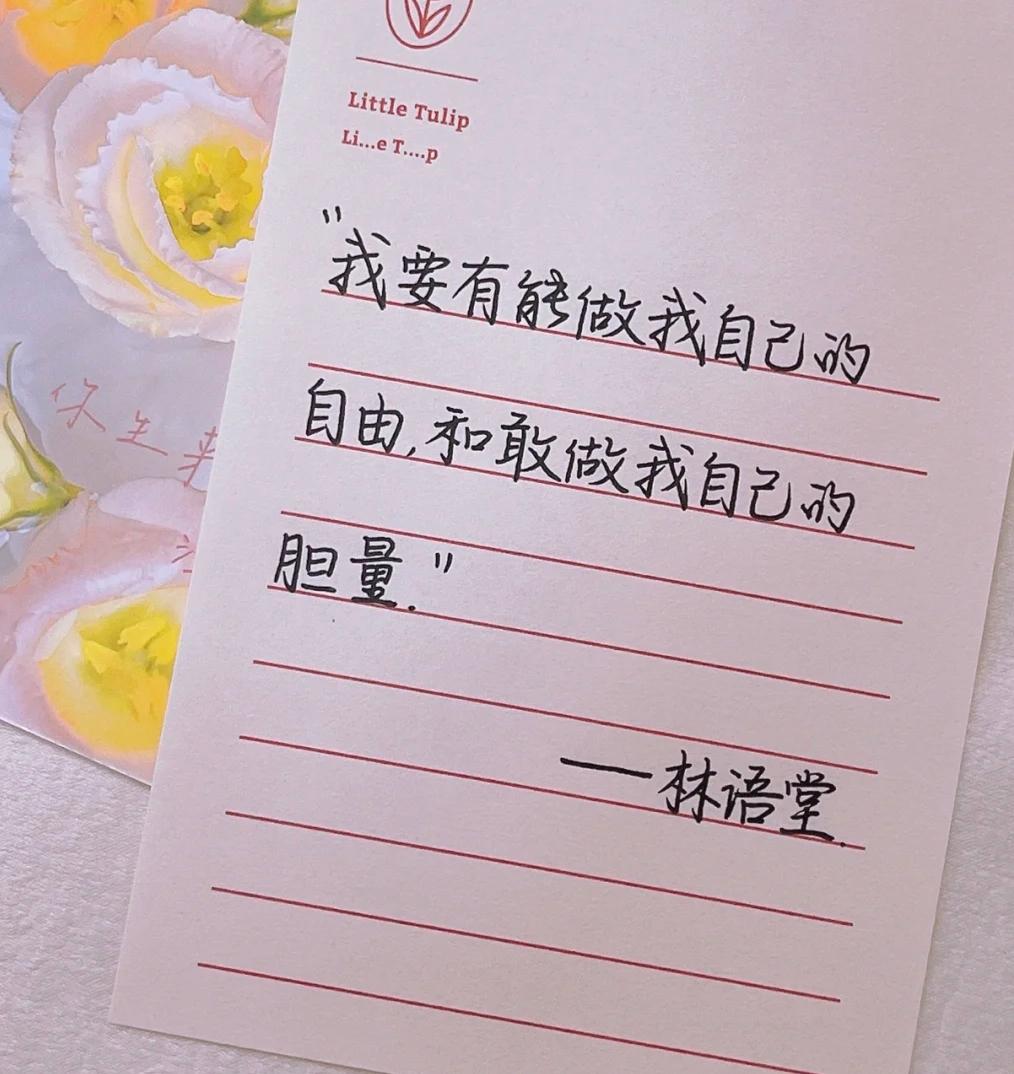 Little Tulip
Li...e T....p
"我要有能做我自己的
自由,和敢做我自己的
胆量."
—林语堂.
你生来